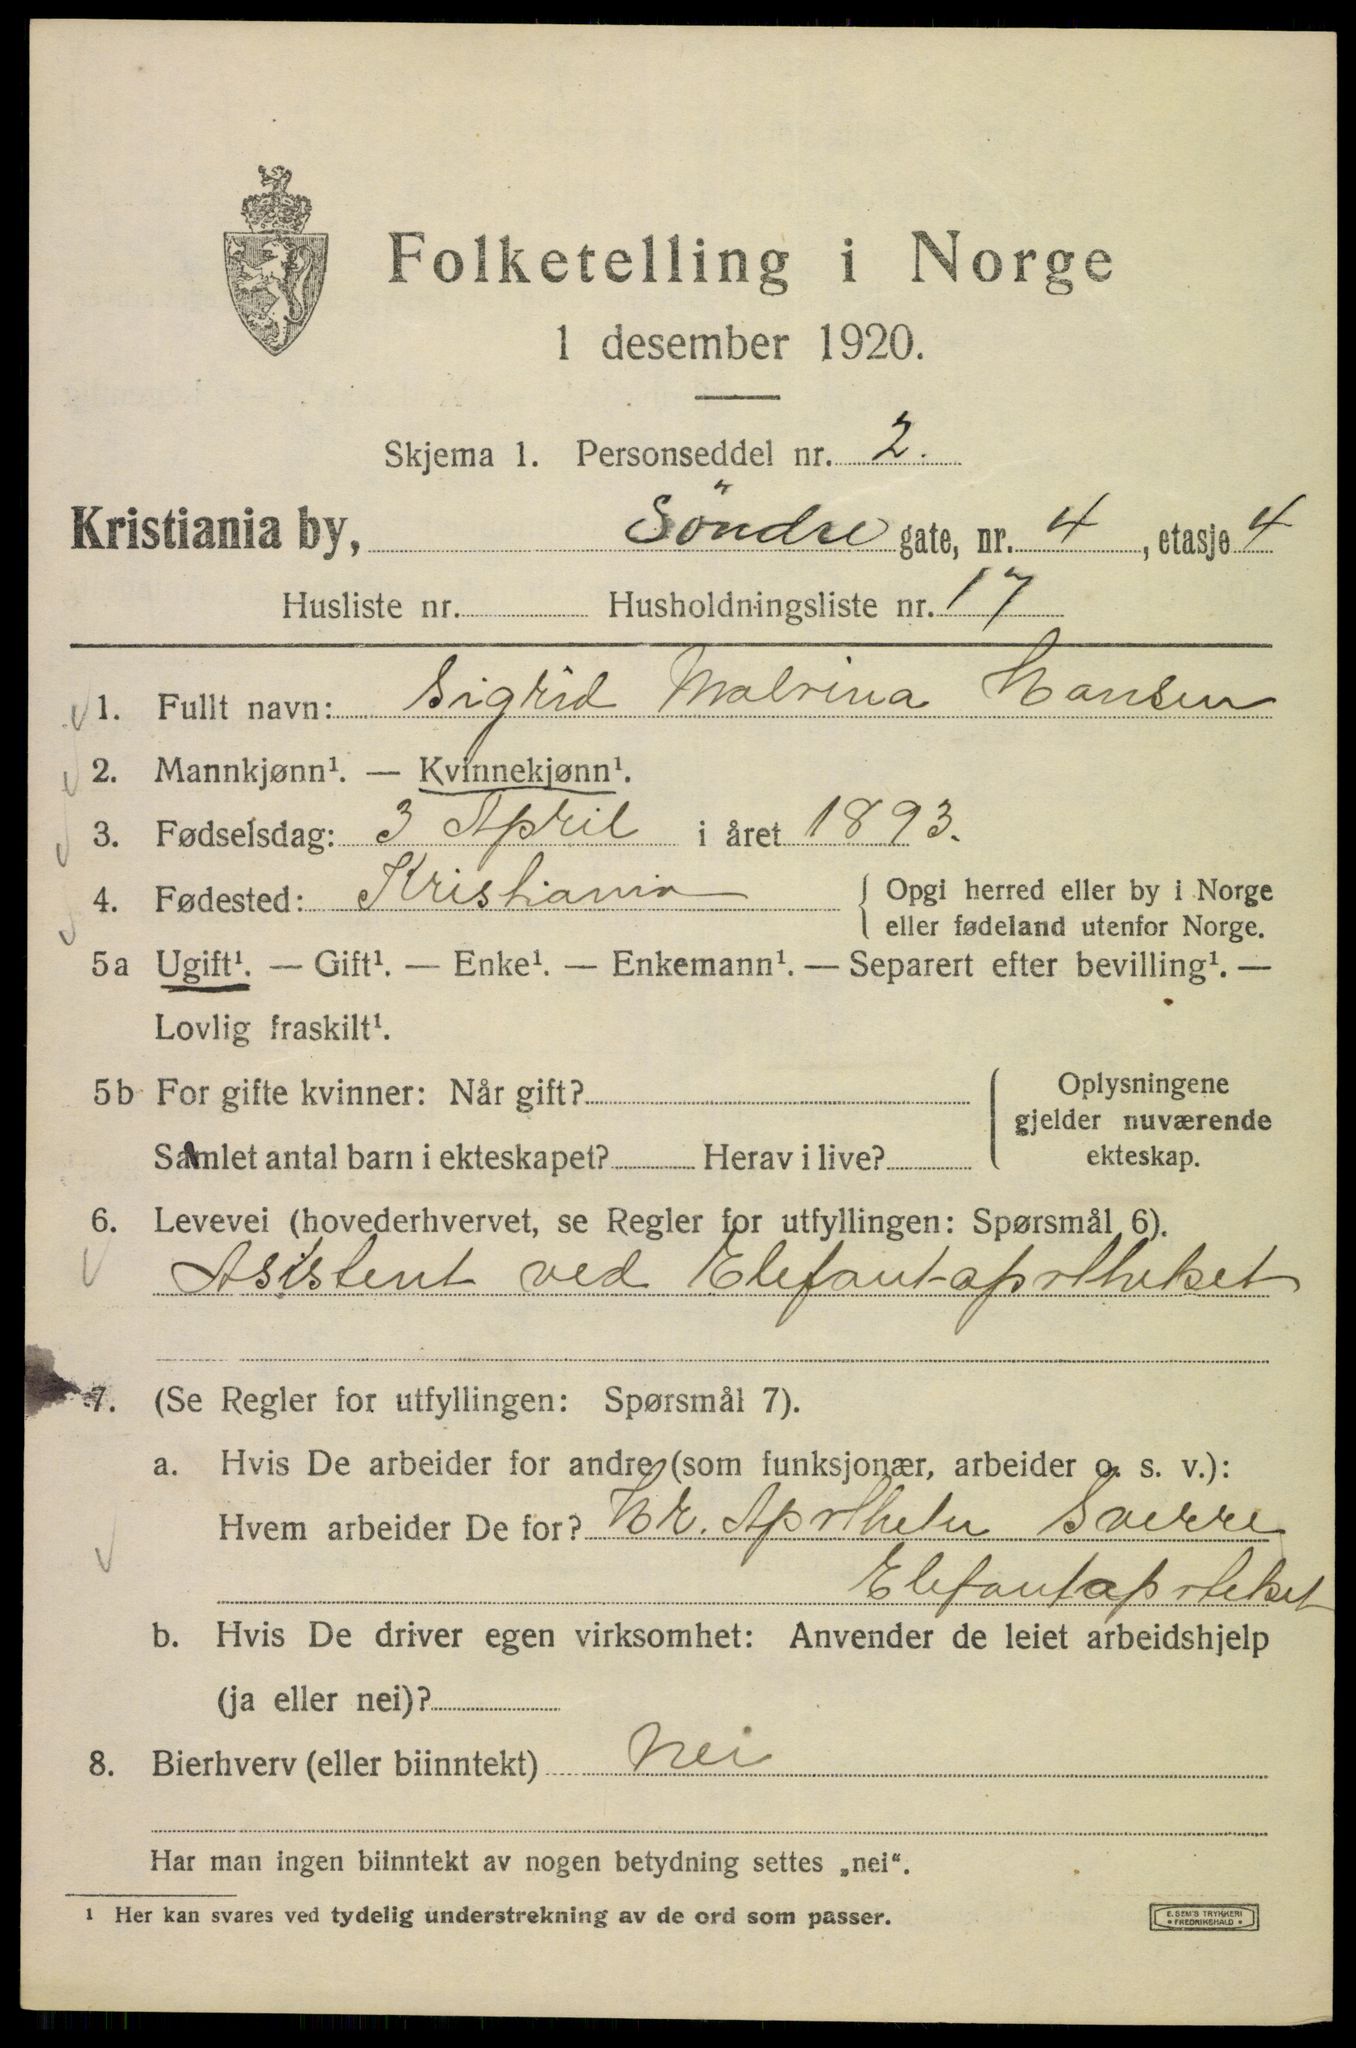 Folketelling i Norge
1 desember 1920.
Skjema 1. Personseddel nr. 2.
Kristiania by, Söndre gate, nr. 4, etasje 4
Husliste nr. Husholdningsliste nr. 17
1. Fullt navn: Sigrid Malvina Hansen
2. Mannkjønn¹. — Kvinnekjønn¹.
3. Fødselsdag: 3 April i året 1893.
4. Fødested: Kristiania { Opgi herred eller by i Norge
eller fødeland utenfor Norge.
5a Ugift¹. — Gift¹. — Enke¹. — Enkemann¹. — Separert efter bevilling¹. —
Lovlig fraskilt¹.
5b For gifte kvinner: Når gift? { Oplysningene
gjelder nuværende
Samlet antal barn i ekteskapet? Herav i live? ekteskap.
6. Levevei (hovederhvervet, se Regler for utfyllingen: Spørsmål 6).
Asistent ved Elefantapotheket
7. (Se Regler for utfyllingen: Spørsmål 7).
a. Hvis De arbeider for andre (som funksjonær, arbeider o. s. v.):
Hvem arbeider De for? Hr. Apotheker Sverre
Elefantapoteket
b. Hvis De driver egen virksomhet: Anvender de leiet arbeidshjelp
(ja eller nei)?
8. Bierhverv (eller biinntekt) Nei
Har man ingen biinntekt av nogen betydning settes „nei“.
¹ Her kan svares ved tydelig understrekning av de ord som passer.
E. SEM'S TRYKKERI
• FREDRIKSHALD •